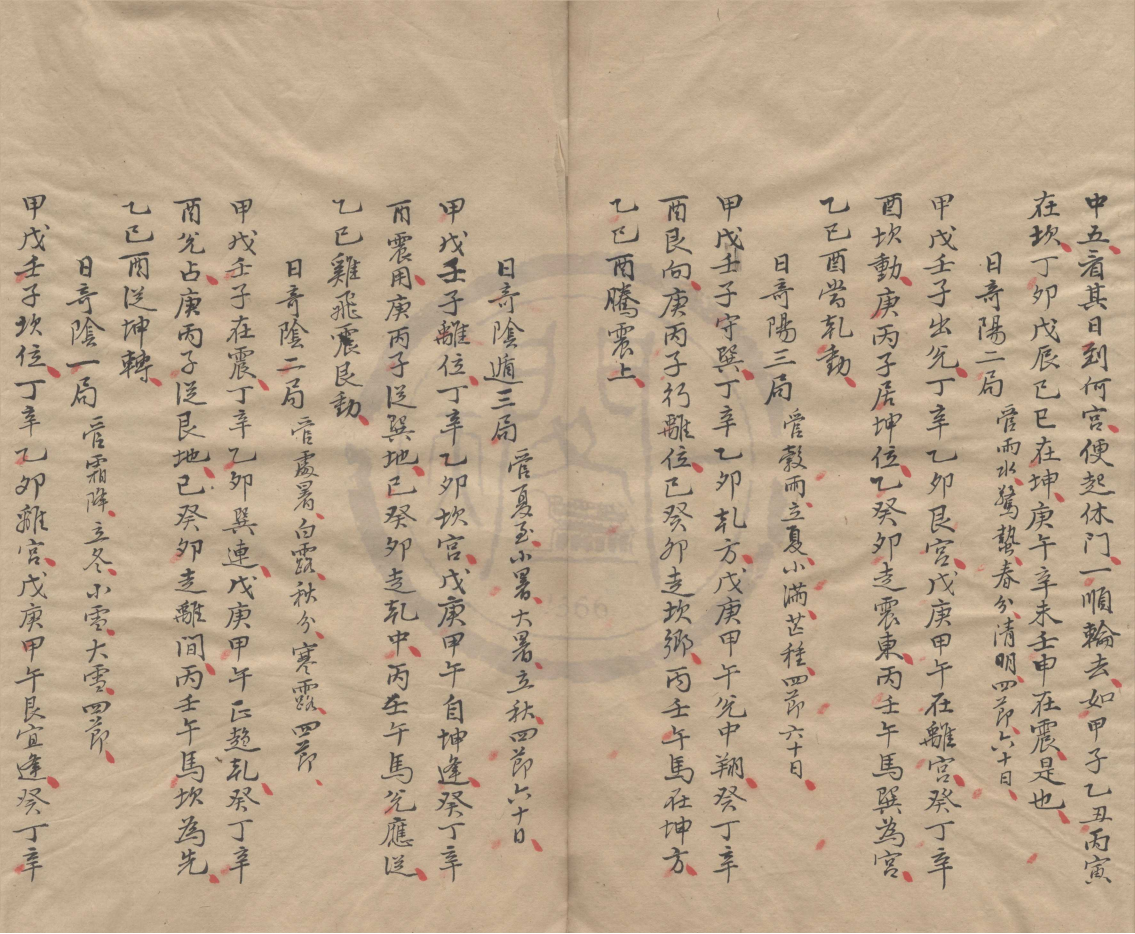 中五看其日到何宫便起休门一順輪去如甲子乙丑丙寅
在坎丁卯戊辰巳巳在坤庚午辛未壬申在震是也
日奇陽二局 管雨水驚蟄春分清明四節六十日
甲戊壬子出兌丁辛乙卯艮宫戊庚甲午在離宫癸丁辛
酉坎動庚丙子居坤位乙癸卯走震東丙壬午馬巽為宫
乙巳酉當乹動
日奇陽三局 管穀雨立夏小滿芒種四節六十日
甲戊壬子守巽丁辛乙卯乹方戊庚甲午兌中翔癸丁辛
酉艮向庚丙子行離位巳癸卯走坎鄉丙壬午馬在坤方
乙巳酉騰震上
日奇陰遁三局 管夏至小暑大暑立秋四節六十日
甲戊壬子離位丁辛乙卯坎宫戊庚甲午自坤逢癸丁辛
酉震用庚丙子从巽地巳癸卯走乹中丙壬午馬兌應从
乙巳雞飛震艮動
日奇陰二局 管處暑白露秋分寒露四節
甲戊壬子在震丁辛乙卯巽連戊庚甲午正趋乹癸丁辛
酉兌占庚丙子从艮地巳癸卯走離間丙壬午馬坎為先
乙巳酉从坤轉
日奇陰一局 管霜降立冬小雪大雪四節
甲戊壬子坎位丁辛乙卯離宫戊庚甲午艮宜逢癸丁辛